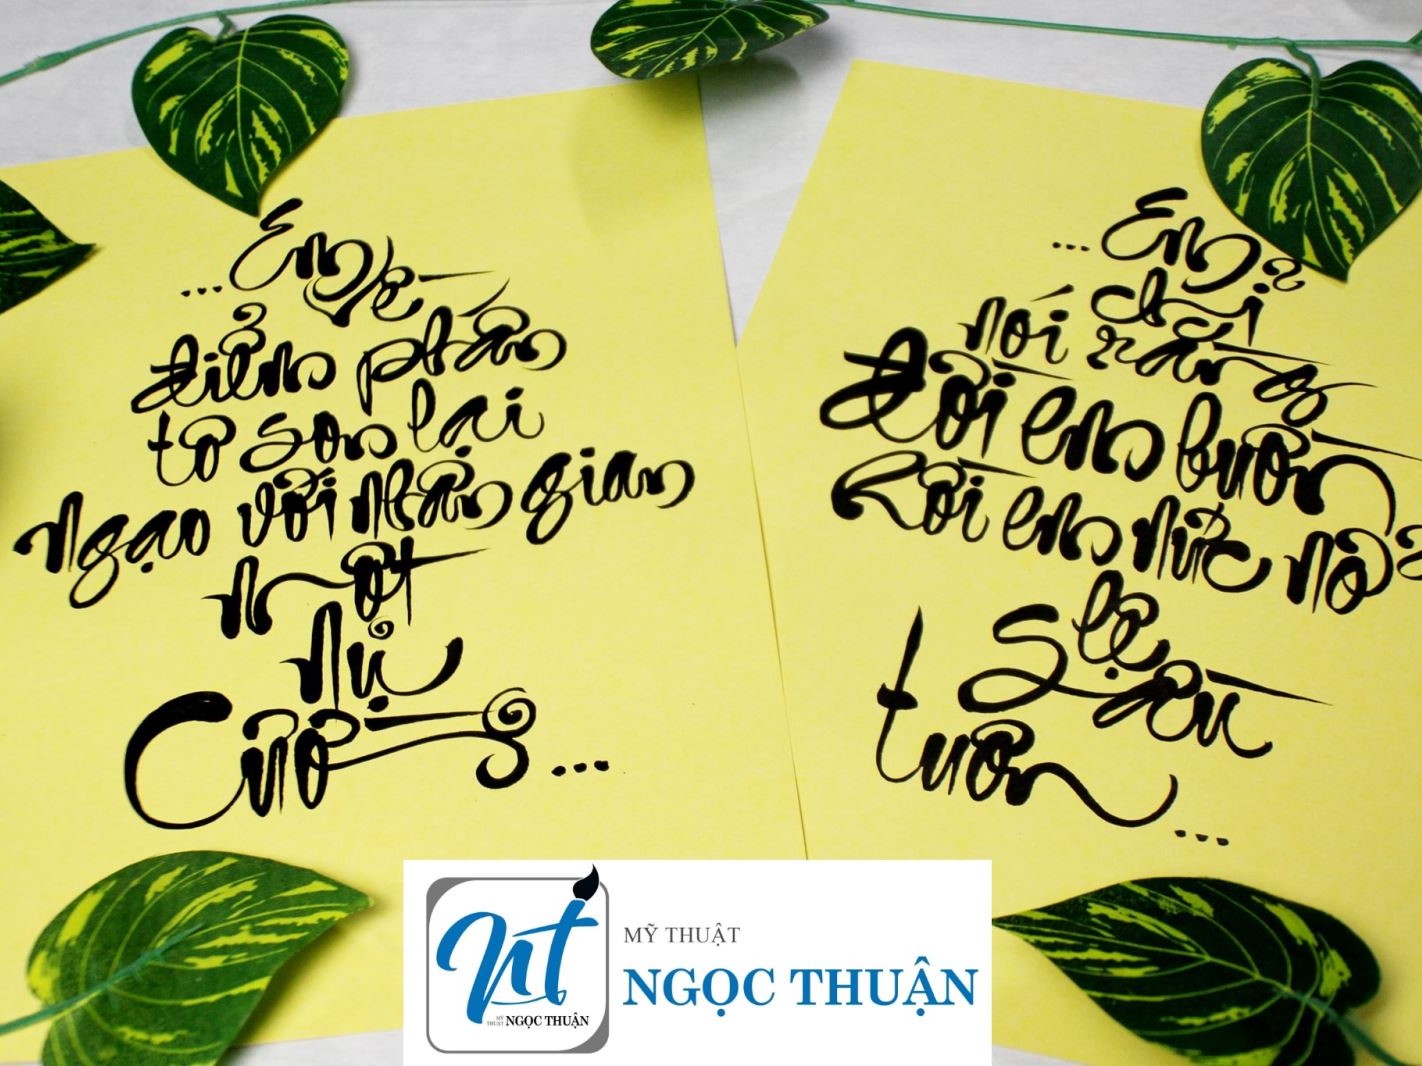 ...Em về
điểm phấn
tô son lại
ngạo với nhân gian
một
nụ
cười...
...Em chỉ
nói rằng
đời em buồn
Rồi em nức nở
lệ
sầu
tuôn...
MỸ THUẬT
NGỌC THUẬN
nt
MỸ THUẬT NGỌC THUẬN